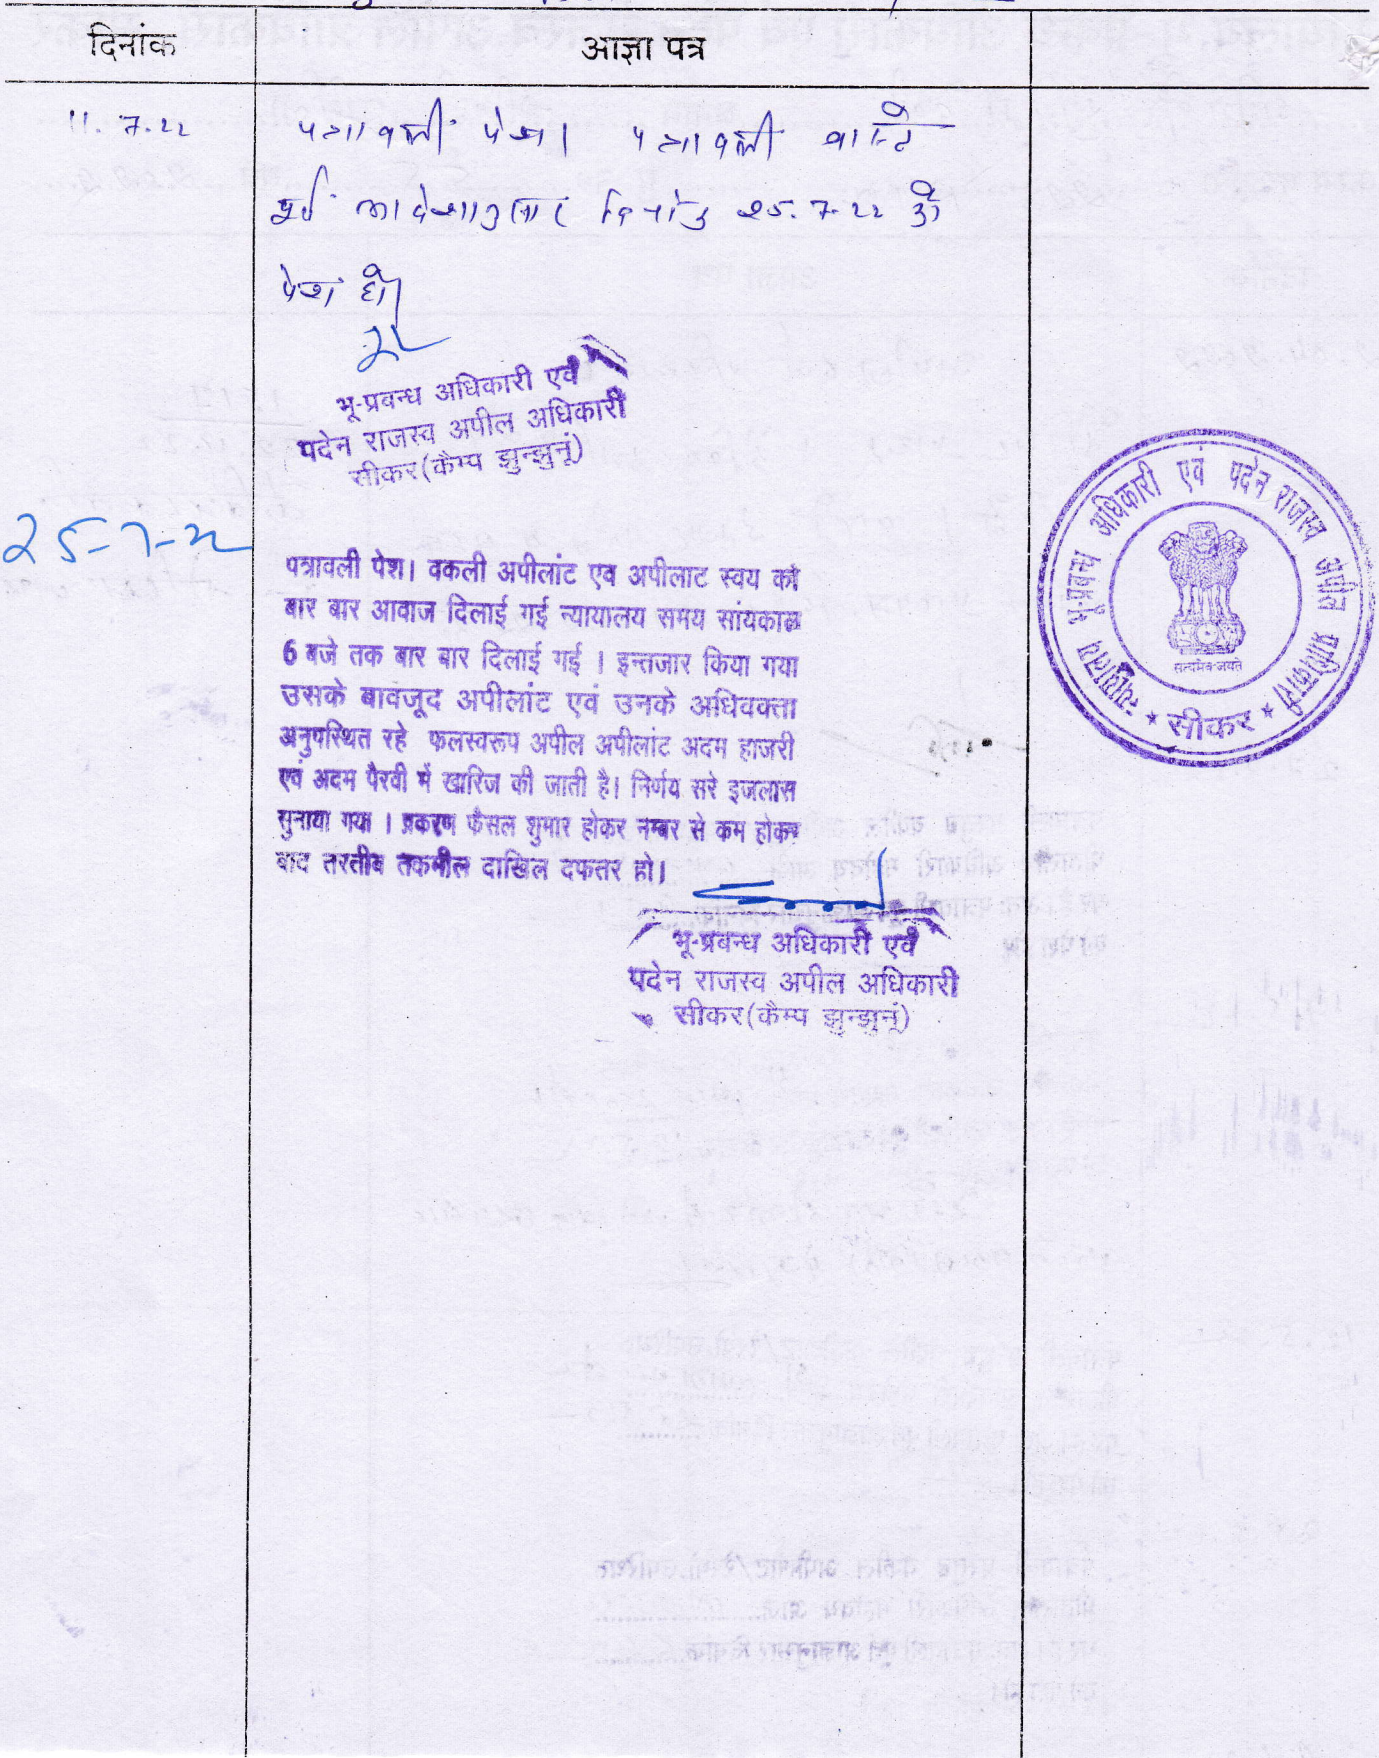 दिनांक
आज्ञा पत्र
11.7.22
पत्रावली पेश। पत्रावली वास्ते
पूर्व आदेशानुसार दिनांक 25.7.22 को
पेश हो।
भू-प्रबन्ध अधिकारी एवं
पदेन राजस्व अपील अधिकारी
सीकर(कैम्प झुन्झुनूं)
25-7-22
पत्रावली पेश। वकली अपीलांट एव अपीलाट स्वय को
बार बार आवाज दिलाई गई न्यायालय समय सांयकाल
6 बजे तक बार बार दिलाई गई । इन्तजार किया गया
उसके बावजूद अपीलांट एवं उनके अधिवक्ता
अनुपस्थित रहे फलस्वरूप अपील अपीलांट अदम हाजरी
एवं अदम पैरवी में खारिज की जाती है। निर्णय सरे इजलास
सुनाया गया । प्रकरण फैसल शुमार होकर नम्बर से कम होकर
बाद तरतीब तकमील दाखिल दफतर हो।
भू-प्रबन्ध अधिकारी एवं
पदेन राजस्व अपील अधिकारी
सीकर(कैम्प झुन्झुनूं)
न्यायालय भू-प्रबन्ध अधिकारी एवं पदेन राजस्व अपील प्राधिकारी
सत्यमेव जयते
★ सीकर ★